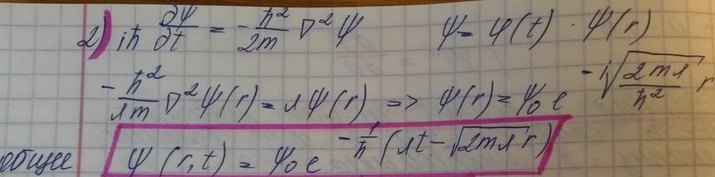 2) iħ ∂ψ/∂t = -ħ²/2m ∇²ψ ψ = φ(t) · ψ(r)
-ħ²/2m ∇²ψ(r) = λψ(r) => ψ(r) = ψ₀ e^{-i√(2mλ/ħ²) r}
общее ψ(r,t) = ψ₀ e^{-i/ħ (λt - √(2mλ) r)}